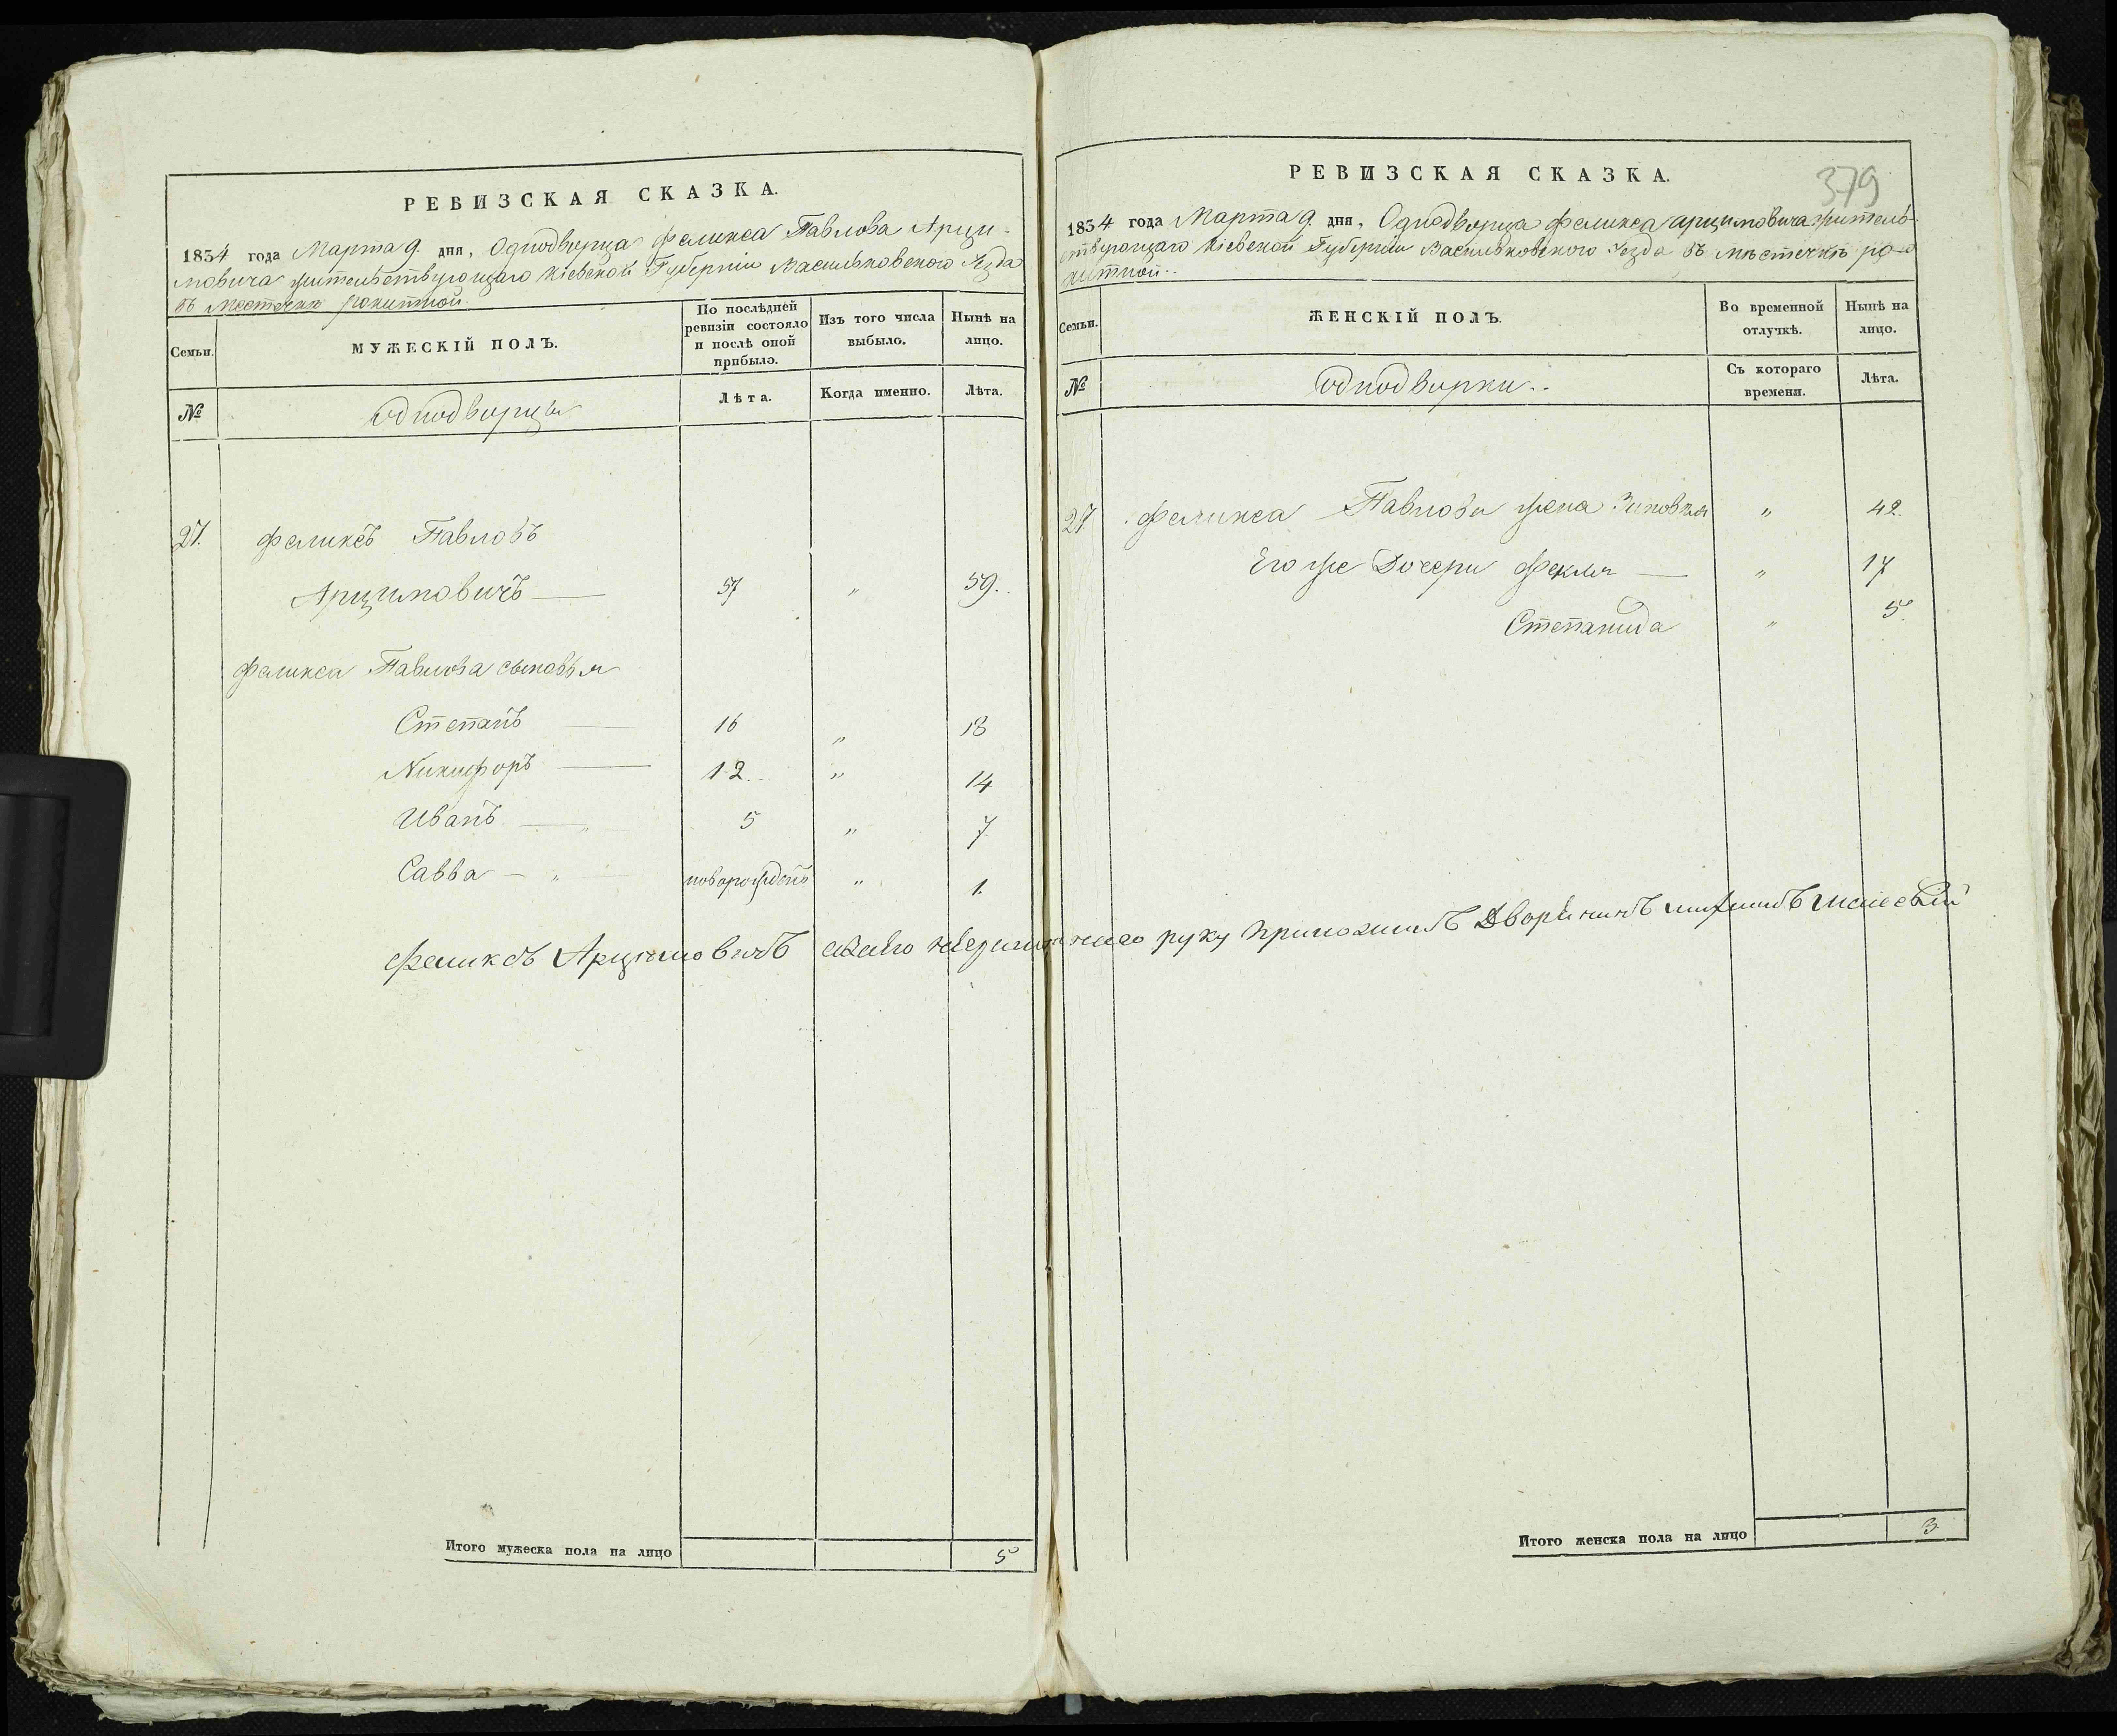 РЕВИЗСКАЯ СКАЗКА.
1834 года Марта 9. дня, Однодворца Феликса Павлова Арци-
мовича жительствующаго Кіевской Губерніи Васильковского Уезда
въ Местечке Рокитной
Семьи.
МУЖЕСКІЙ ПОЛЪ.
По послѣдней ревизіи состояло и послѣ оной прибыло.
Изъ того числа выбыло.
Нынѣ на лицо.
№
однодворцы
Лѣта.
Когда именно.
Лѣта.
27. Феликсъ Павловъ
Арцимовичъ — 57 " 59.
Феликса Павлова сыновья
Степанъ — 16 " 18
Никифоръ — 12. " 14
Иванъ — " 5 " 7
Савва — " новорожденъ " 1.
Феликсъ Арцимовичъ руку приложилъ Дворянинъ
Итого мужеска пола на лицо 5
РЕВИЗСКАЯ СКАЗКА.
379
1834 года Марта 9. дня, Однодворца Феликса Арцимовича житель-
ствующаго Кіевской Губерніи Васильковского Уезда въ мѣстечкѣ Ро-
китной..
Семьи.
ЖЕНСКІЙ ПОЛЪ.
Во временной отлучкѣ.
Нынѣ на лицо.
№
однодворки..
Съ котораго времени.
Лѣта.
27 Феликса Павлова жена Зиновия " 42.
Его же Дочери Фекла — " 17
Степанида " 5.
Итого женска пола на лицо 3